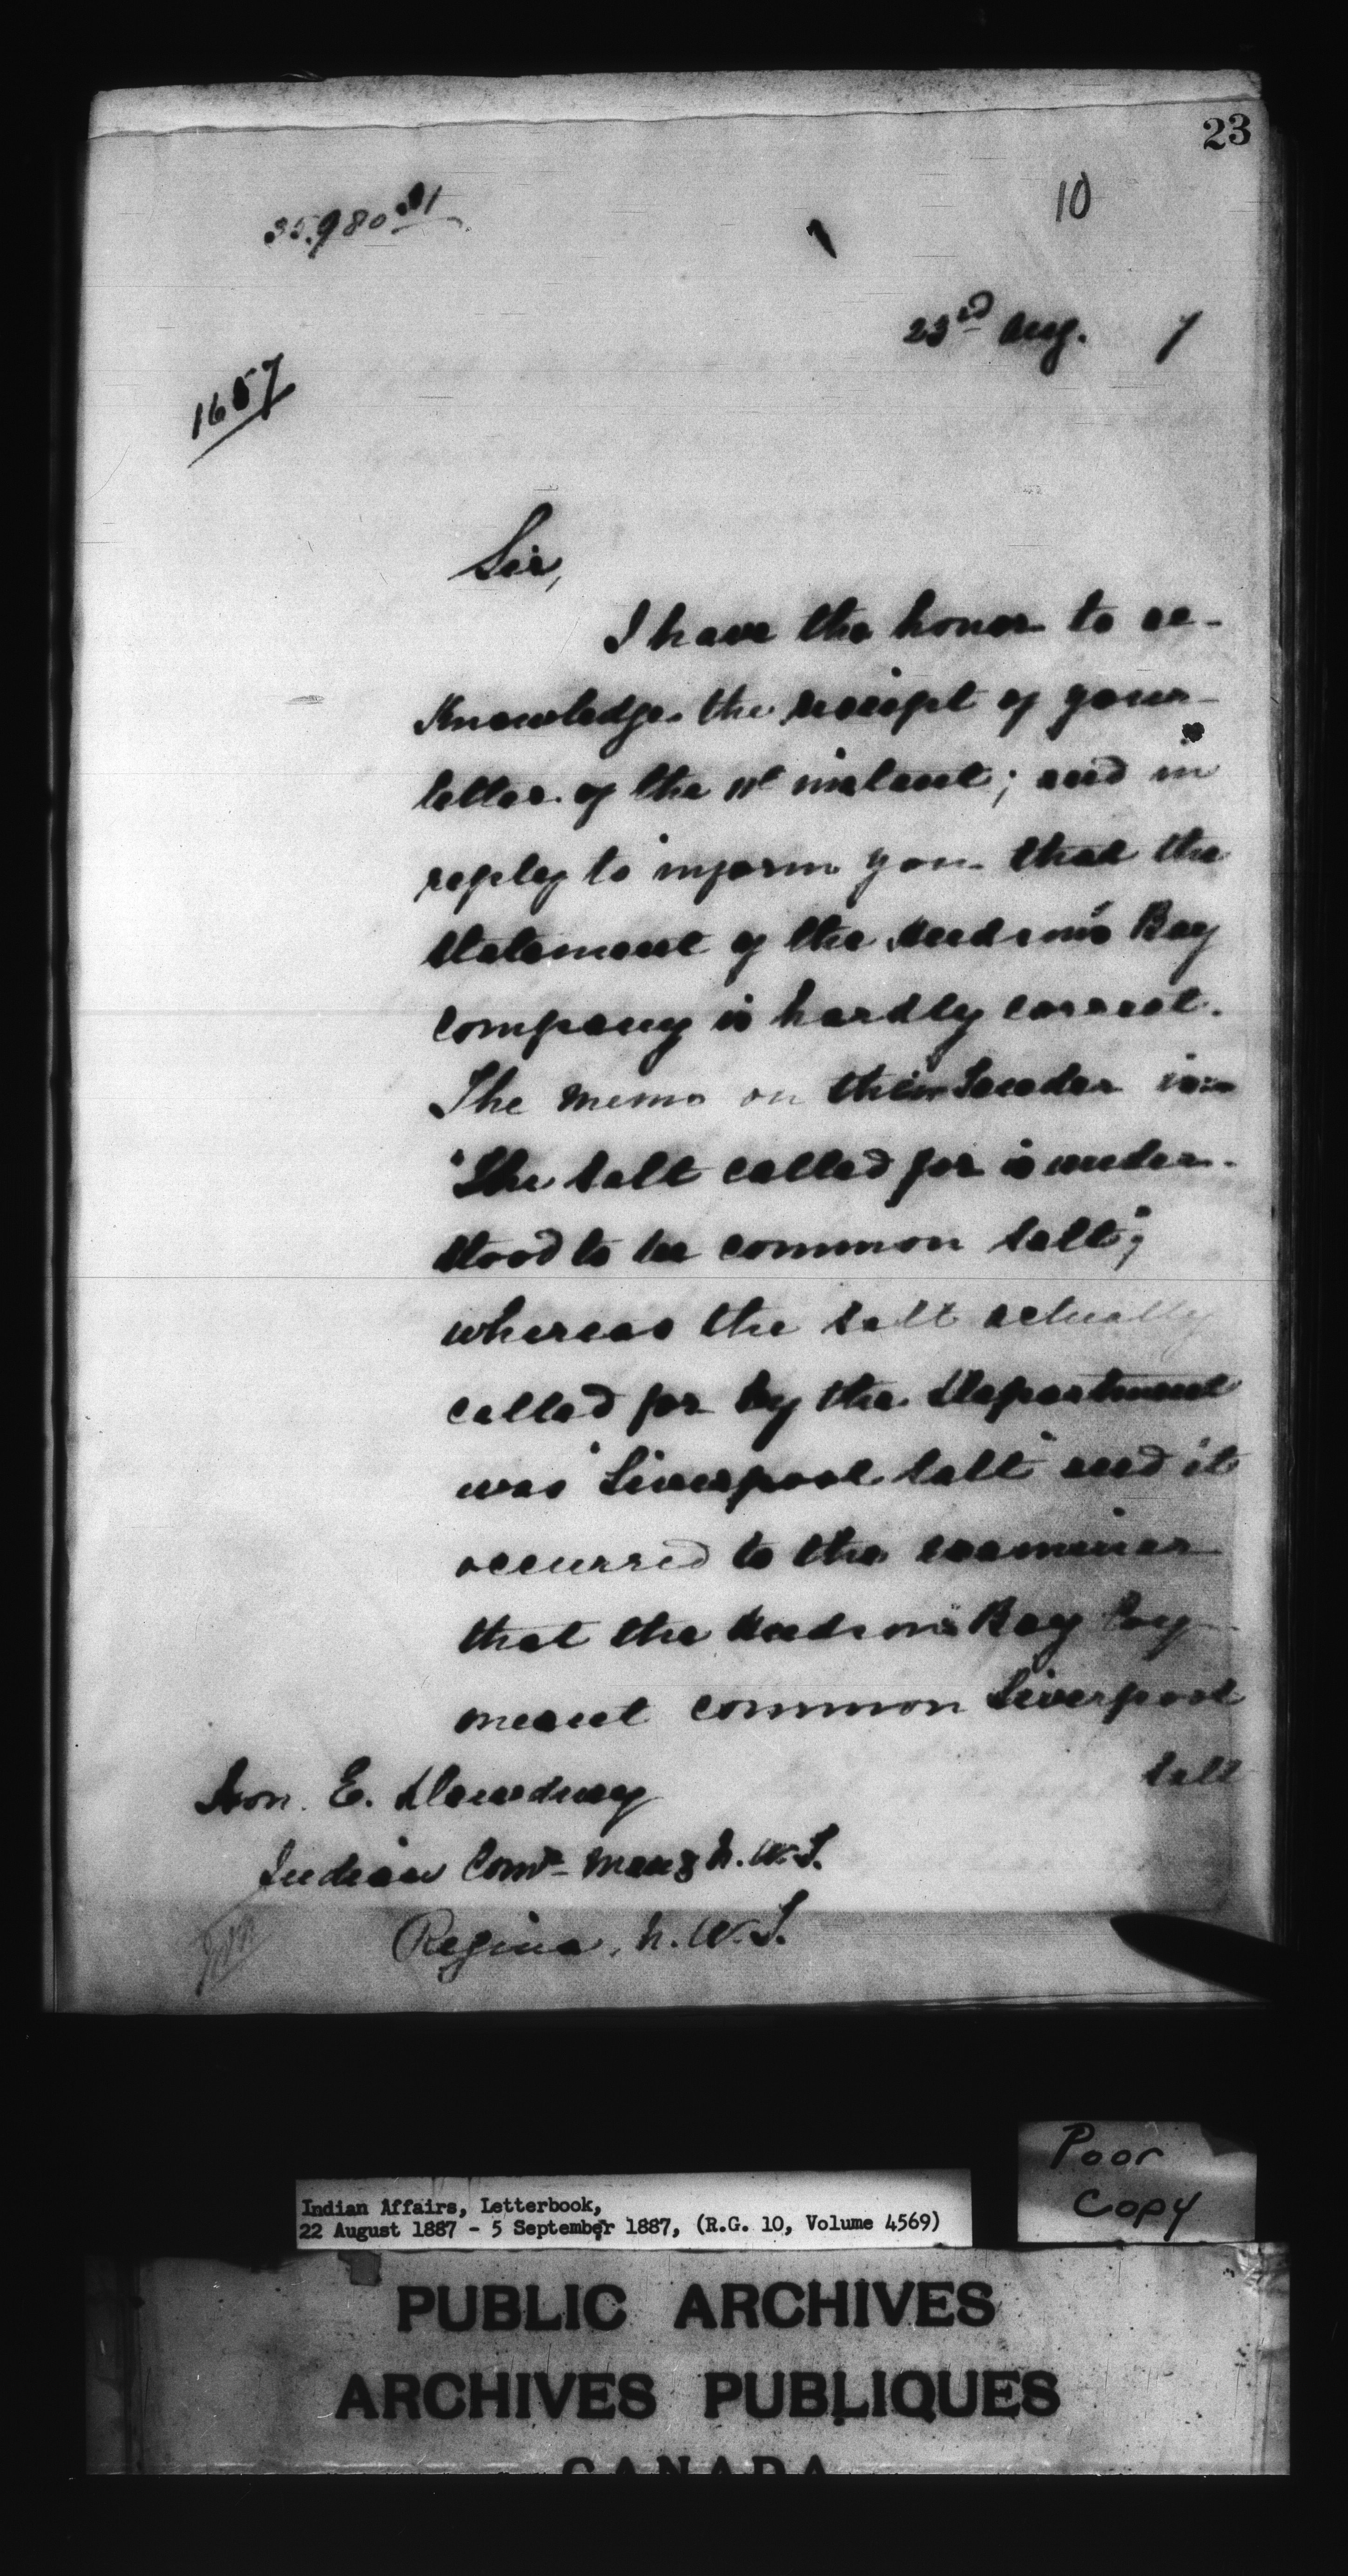 23
10
35.980
23rd Aug. 7
1657
Sir,
I have the honor to ac-
knowledge the receipt of your
letter of the instant; and in
reply to inform you that the
statement of the Hudson's Bay
Company is hardly correct.
The memo on their Tender is:-
"The salt called for is under-
stood to be common salt";
whereas the salt actually
called for by the Department
was "Liverpool salt" and it
occurred to the examiner
that the Hudson's Bay Coy
meant common Liverpool
salt
Hon. E. Dewdney
Indian Comr. Man & N.W.T.
Regina, N.W.T.
Poor
Copy
Indian Affairs, Letterbook,
22 August 1887 - 5 September 1887, (R.G. 10, Volume 4569)
PUBLIC ARCHIVES
ARCHIVES PUBLIQUES
CANADA